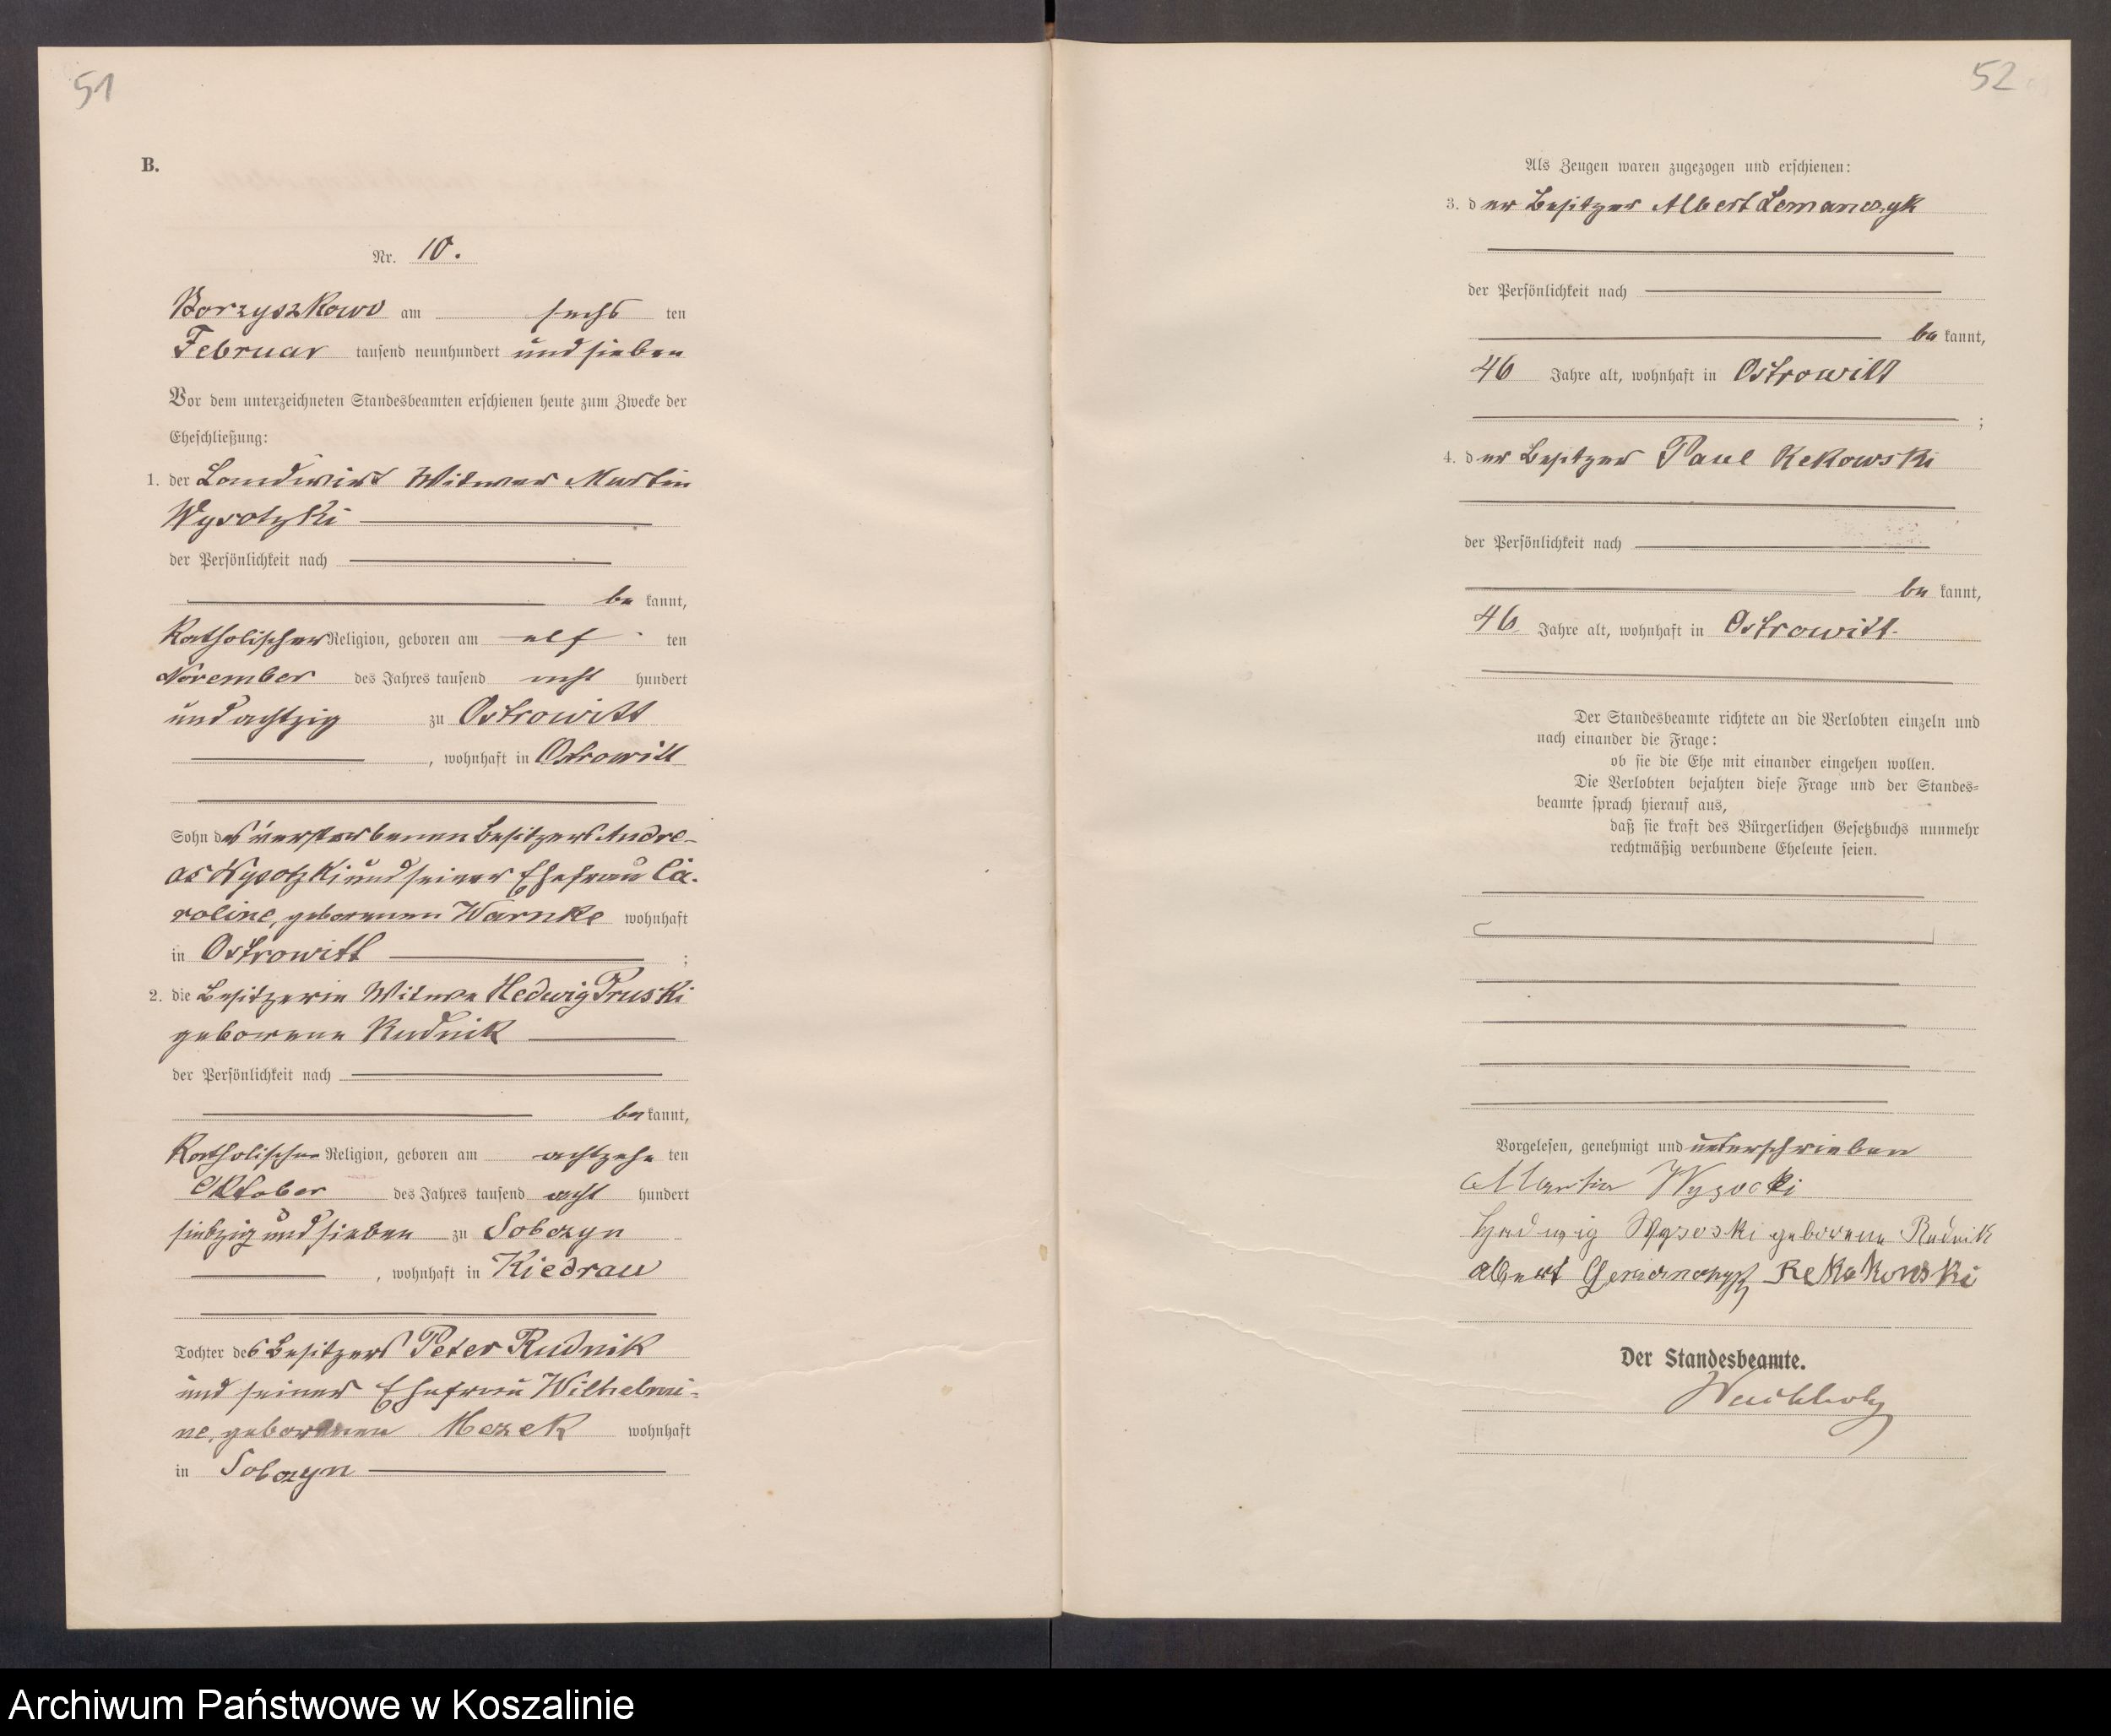 51
B.
Nr. 10.
Borzyszkowo am sechs ten
Februar tausend neunhundert und sieben
Vor dem unterzeichneten Standesbeamten erschienen heute zum Zwecke der
Eheschließung:
1. der Landwirt Witwer Martin
Wysotzki
der Persönlichkeit nach
be kannt,
katholischer Religion, geboren am elf ten
November des Jahres tausend acht hundert
und achtzig zu Ostrowitt
, wohnhaft in Ostrowitt
Sohn des verstorbenen Besitzers Andre-
as Wysotzki und seiner Ehefrau Ca-
roline, geborenen Warnke wohnhaft
in Ostrowitt ;
2. die Besitzerin Witwe Hedwig Pruski
geborene Rudnik
der Persönlichkeit nach
be kannt,
katholischer Religion, geboren am achtzehn ten
Oktober des Jahres tausend acht hundert
siebzig und sieben zu Sobczyn
, wohnhaft in Kiedrau
Tochter des Besitzers Peter Rudnik
und seiner Ehefrau Wilhelmi-
ne, geborenen wohnhaft
in Sobczyn
52
Als Zeugen waren zugezogen und erschienen:
3. der Besitzer Albert Lemanczyk
der Persönlichkeit nach
be kannt,
46 Jahre alt, wohnhaft in Ostrowitt
;
4. der Besitzer Paul Kekowski
der Persönlichkeit nach
be kannt,
46 Jahre alt, wohnhaft in Ostrowitt.
Der Standesbeamte richtete an die Verlobten einzeln und
nach einander die Frage:
ob sie die Ehe mit einander eingehen wollen.
Die Verlobten bejahten diese Frage und der Standes-
beamte sprach hierauf aus,
daß sie kraft des Bürgerlichen Gesetzbuchs nunmehr
rechtmäßig verbundene Eheleute seien.
Vorgelesen, genehmigt und unterschrieben
Martin Wysocki
Hedwig Wysoski geborene Rudnik
Albert
Der Standesbeamte.